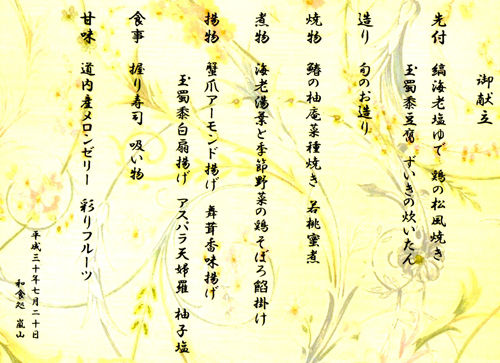 御献立
先付 縞海老塩ゆで 鶏の松風焼き
玉蜀黍豆腐 ずいきの炊いたん
造り 旬のお造り
焼物 鰆の柚庵菜種焼き 若桃蜜煮
煮物 海老湯葉と季節野菜の鶏そぼろ餡掛け
揚物 蟹爪アーモンド揚げ 舞茸香味揚げ
玉蜀黍白扇揚げ アスパラ天婦羅 柚子塩
食事 握り寿司 吸い物
甘味 道内産メロンゼリー 彩りフルーツ
平成三十年七月二十日
和食処 嵐山